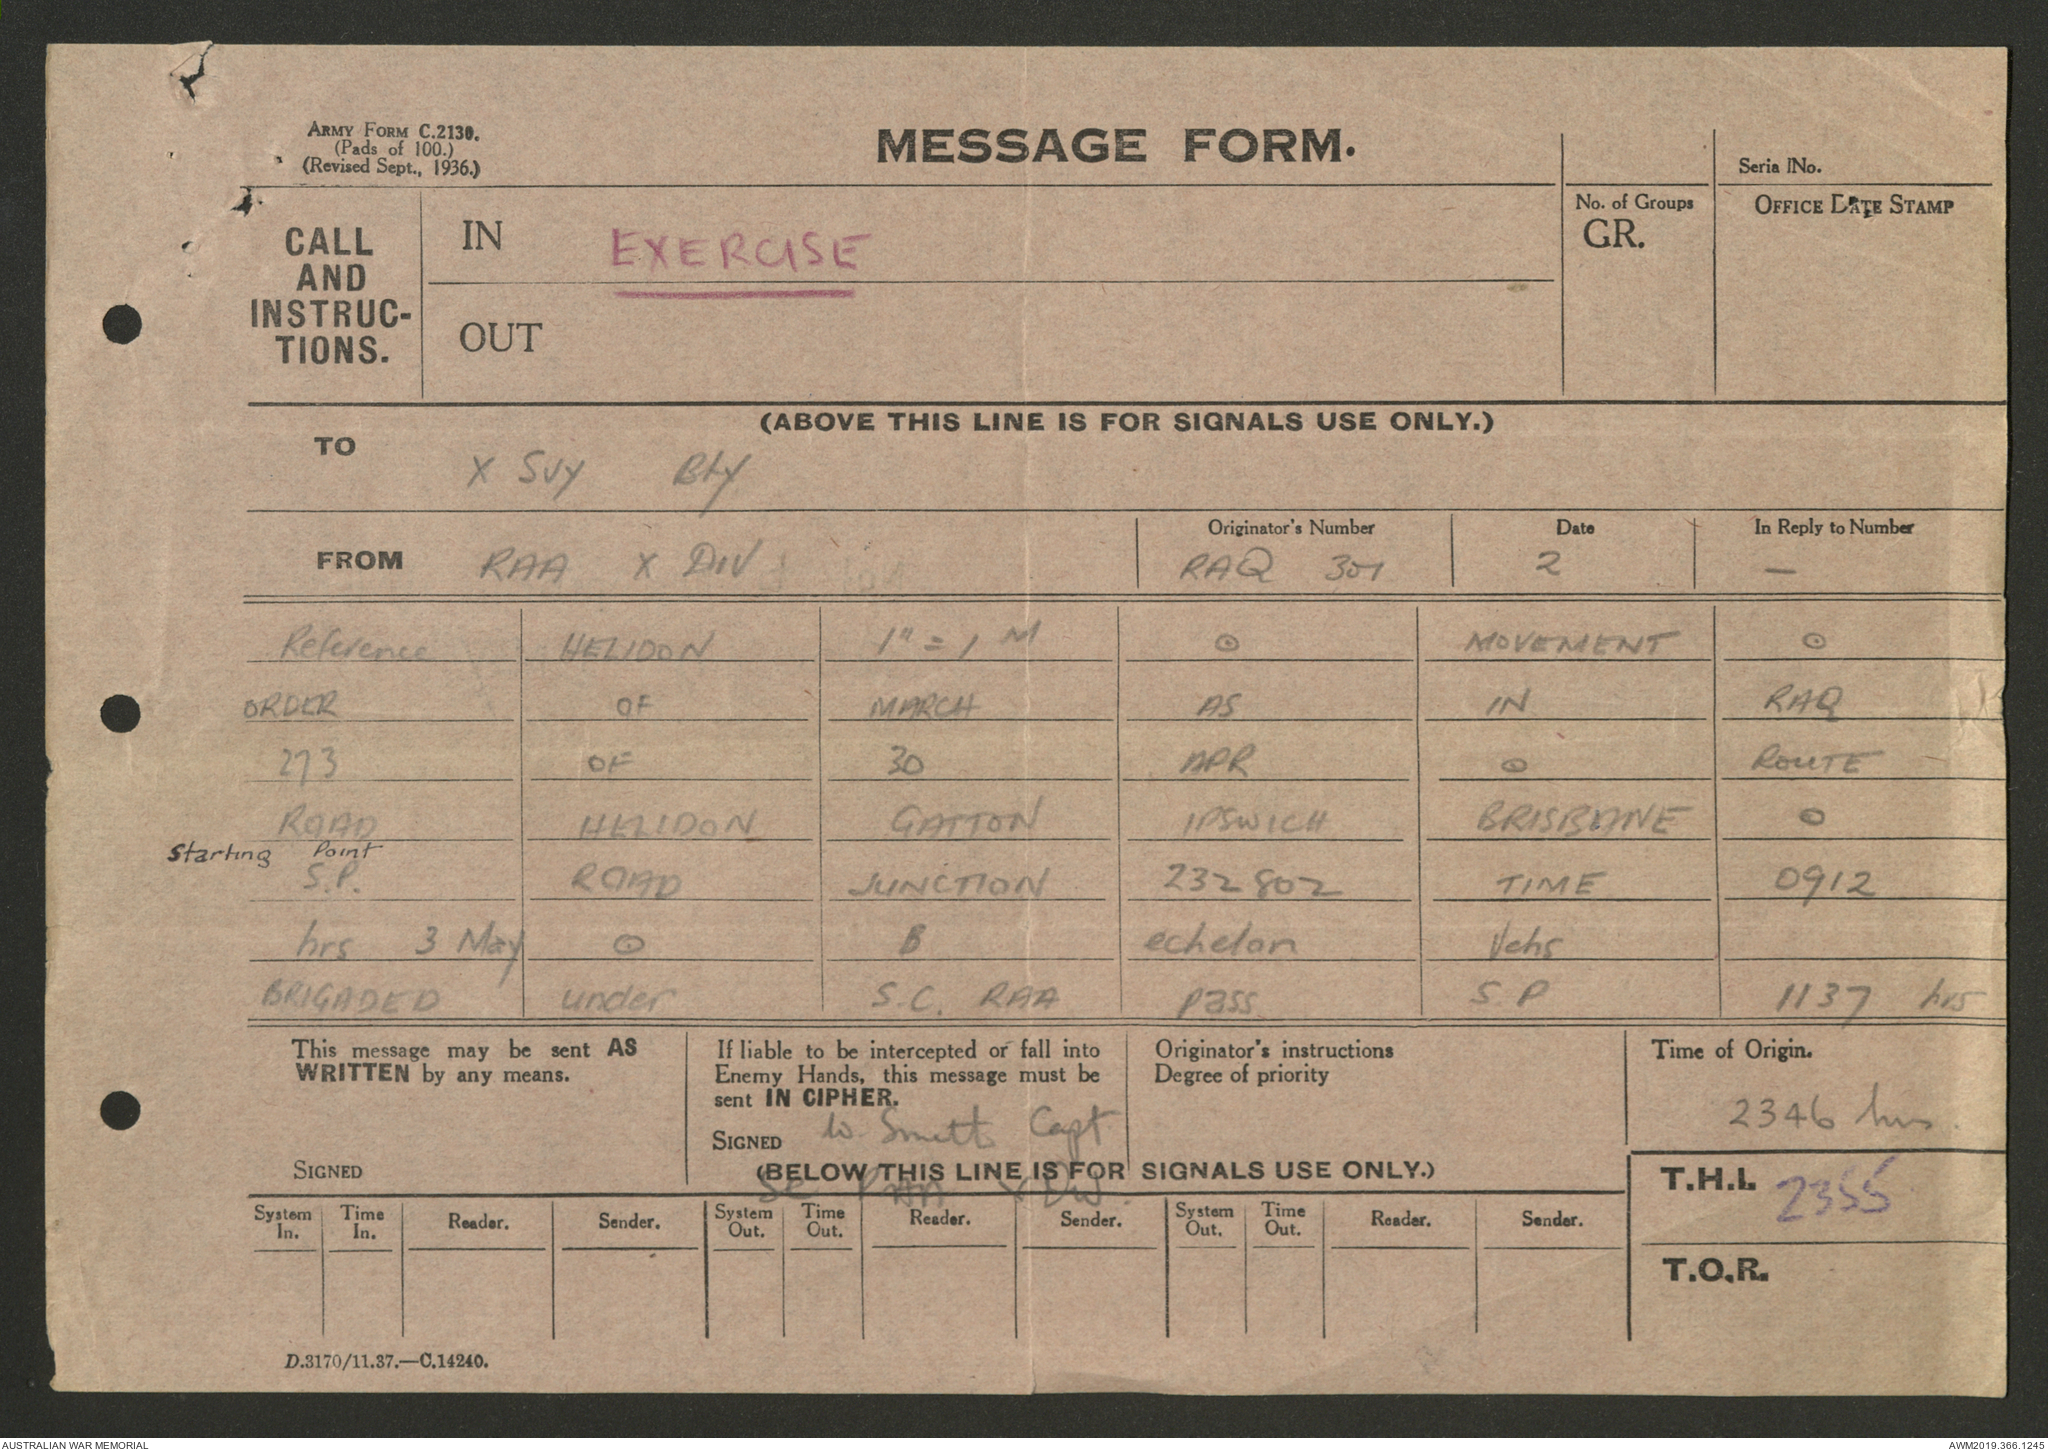 ARMY FORM C.2130.
(Pads of 100.)
(Revised Sept., 1936.)
MESSAGE FORM.
Serial No.
CALL AND INSTRUC-TIONS.
IN EXERCISE
OUT
No. of Groups
GR.
OFFICE DATE STAMP
(ABOVE THIS LINE IS FOR SIGNALS USE ONLY.)
TO X Svy Bty
FROM RAA X DIV
Originator's Number RAQ 301
Date 2
In Reply to Number —
Reference HELIDON 1" = 1 M ⊙ MOVEMENT ⊙
ORDER OF MARCH AS IN RAQ
273 OF 30 APR ⊙ ROUTE
ROAD HELIDON GATTON IPSWICH BRISBANE ⊙
Starting Point
S.P. ROAD JUNCTION 232802 TIME 0912
hrs 3 May ⊙ B echelon Vehs
BRIGADED under S.C. RAA pass S.P 1137 hrs
This message may be sent AS
WRITTEN by any means.
SIGNED
If liable to be intercepted or fall into
Enemy Hands, this message must be
sent IN CIPHER.
SIGNED W. Smith Capt
SC RAA X Div.
Originator's instructions
Degree of priority
Time of Origin.
2346 hrs.
(BELOW THIS LINE IS FOR SIGNALS USE ONLY.)
T.H.I. 2355
T.O.R.
System In. Time In. Reader. Sender. System Out. Time Out. Reader. Sender. System Out. Time Out. Reader. Sender.
D.3170/11.37.—C.14240.
AUSTRALIAN WAR MEMORIAL
AWM2019.366.1245